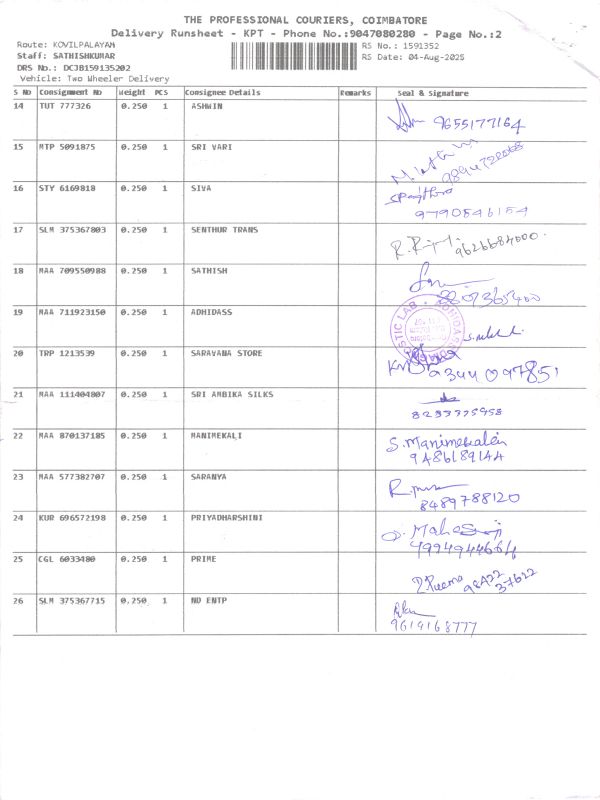 THE PROFESSIONAL COURIERS, COIMBATORE
Delivery Runsheet - KPT - Phone No.:9047080280 - Page No.:2
Route: KOVILPALAYAM
RS No.: 1591352
Staff: SATHISHKUMAR
RS Date: 04-Aug-2025
DRS No.: DCJB159135202
Vehicle: Two Wheeler Delivery
S No Consignment No Weight PCS Consignee Details Remarks Seal & Signature
14 TUT 777326 0.250 1 ASHWIN
9655177164
15 MTP 5091875 0.250 1 SRI VARI
16 STY 6169818 0.250 1 SIVA
9790846154
17 SLM 375367803 0.250 1 SENTHUR TRANS
9626684000.
18 MAA 709550988 0.250 1 SATHISH
19 MAA 711923150 0.250 1 ADHIDASS
20 TRP 1213539 0.250 1 SARAVANA STORE
9344097851
21 MAA 111404807 0.250 1 SRI AMBIKA SILKS
22 MAA 870137185 0.250 1 MANIMEKALI
S. Manimekalai
9486189144
23 MAA 577382707 0.250 1 SARANYA
8489788120
24 KUR 696572198 0.250 1 PRIYADHARSHINI
25 CGL 6033480 0.250 1 PRIME
98422
37622
26 SLM 375367715 0.250 1 ND ENTP
9619168777